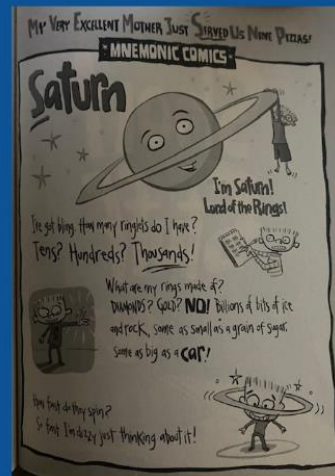 My Very Excellent Mother Just Served Us Nine Pizzas!
MNEMONIC COMICS
Saturn
I'm Saturn!
Lord of the Rings!
I've got bling. How many ringlets do I have?
Tens? Hundreds? Thousands!
What are my rings made of?
DIAMONDS? GOLD? NO! Billions of bits of ice
and rock, some as small as a grain of sugar.
Some as big as a car!
How fast do they spin?
So fast I'm dizzy just thinking about it!